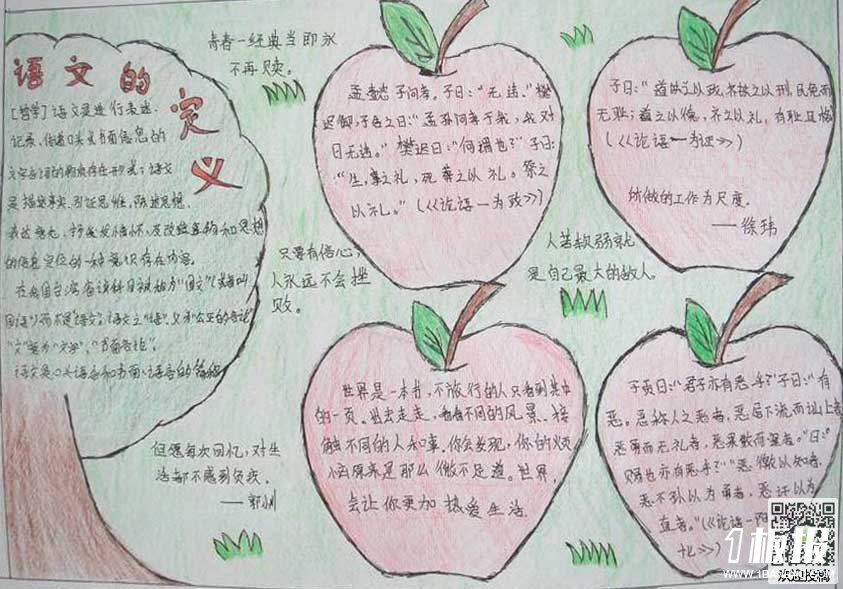 语文的定义
[哲学]语文是进行表述、
记录、传递口头或书面信息的
文字言词的
是描述事实、引证思维、陈述思想、
表达意志、抒发情怀、及改造事物和思想
的信息定位的一种意识存在内容。
在我国台湾省该科目被称为“国文”
国语”）而不是“语文”。
“文”
语文是口头语言和书面语言的简称
青春一经典当即永
不再赎。
孟懿子问孝。子曰：“无违。”樊
迟御，子告之曰：“孟孙问孝于我，我对
曰无违。”樊迟曰：“何谓也？”子曰：
“生，事之礼，死葬之以礼。祭之
以礼。”（《论语一为政》）
子曰：“道之以政，齐之以刑，民免而
无耻；道之以德，齐之以礼，有耻且格
所做的工作为尺度。
——徐玮
只要有信心，
人永远不会挫
败。
人若软弱就
是自己最大的敌人。
世界是一本书，不旅行的人只看到其中
的一页。出去走走，看看不同的风景、接
触不同的人和事。你会发现，你的烦
恼原来是那么微不足道。世界，
会让你更加热爱生活.
子贡曰：“君子亦有恶乎？”子曰：“有
恶。恶称人之恶者，恶居下流而讪上者
恶勇而无礼者，恶果敢而窒者。”曰：“
赐也亦有恶乎？”“恶徼以知者，
恶不孙以为勇者，恶讦以为
直者。”（《论语一阳
货》）
但愿每次回忆，对生
活都不感到负疚。
——郭小川
板报
欢迎投稿